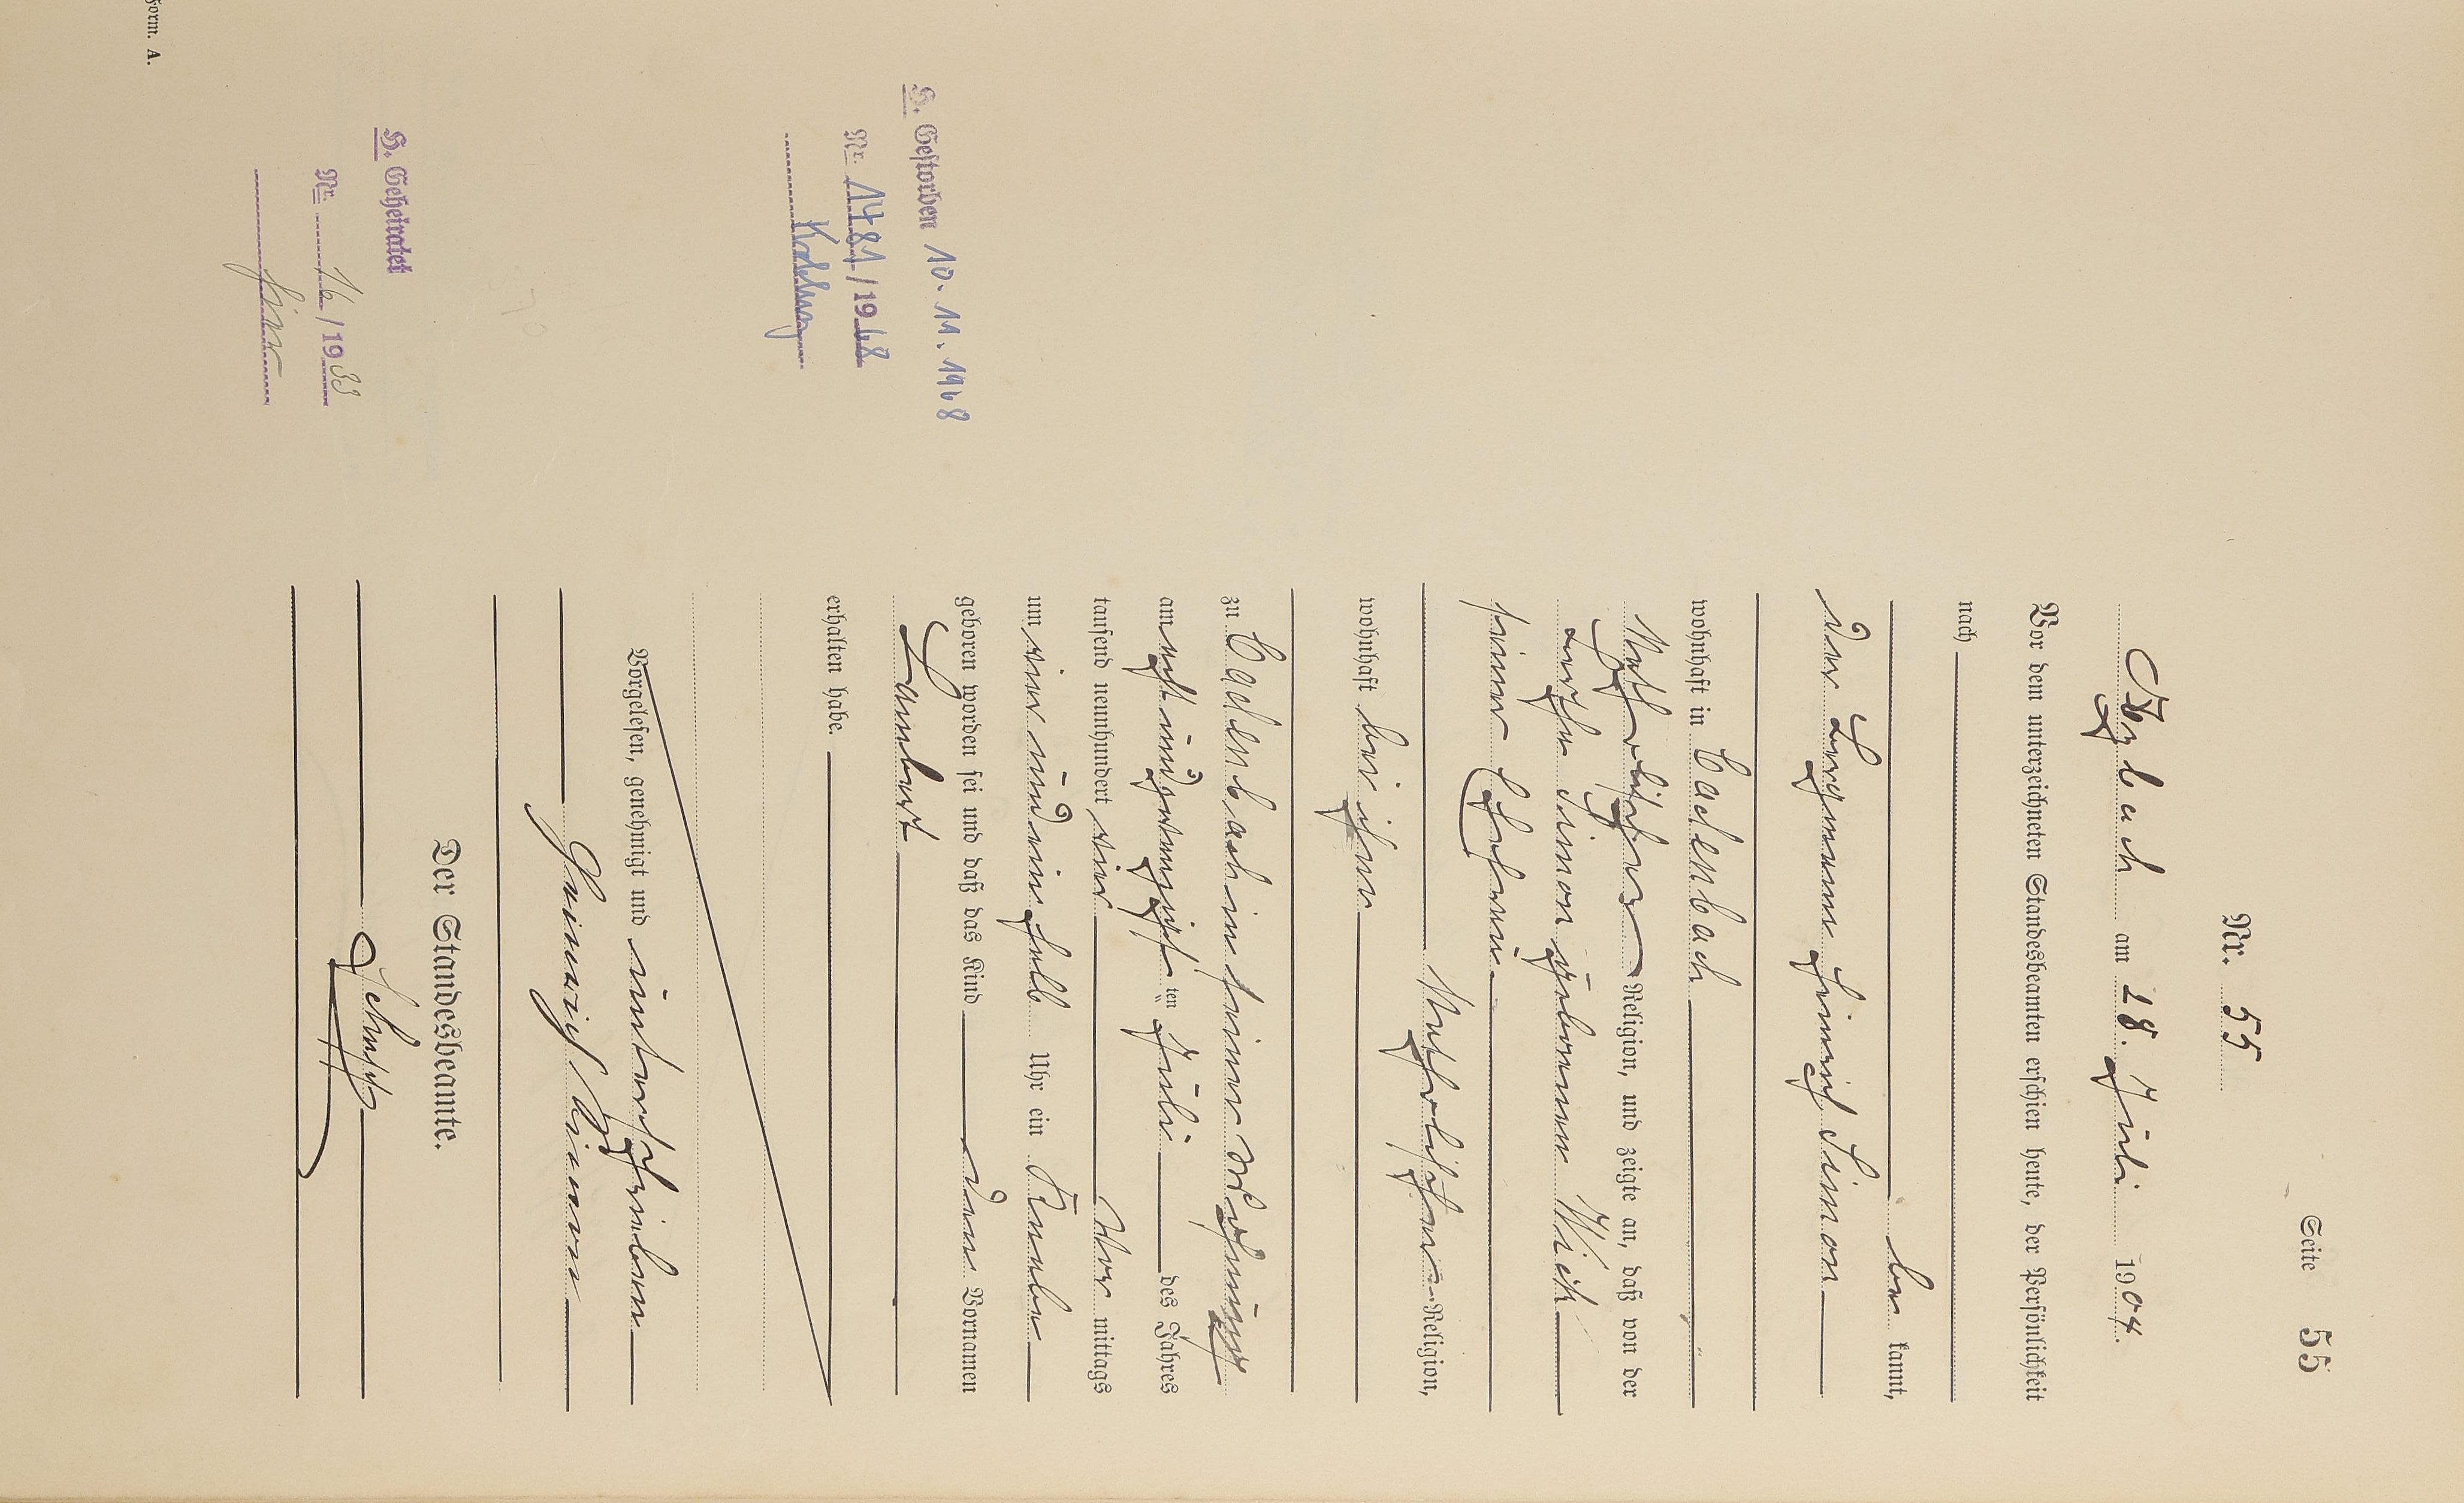 Seite 55
Nr. 55
am 28. Juli 1904.
Vor dem unterzeichneten Standesbeamten erschien heute, der Persönlichkeit
nach
be kannt,
der Bergmann Heinrich Simon
wohnhaft in Cadenbach
Katholischer Religion, und zeigte an, daß von der
Simon geborenen Wick
seiner Ehefrau
Katholischer Religion,
wohnhaft bei ihm
zu Cadenbach in seiner Wohnung
am acht und zwanzigsten Juli des Jahres
tausend neunhundert vier Vor mittags
um vier und ein halb Uhr ein Knabe
geboren worden sei und daß das Kind den Vornamen
Lambert
erhalten habe.
Vorgelesen, genehmigt und unterschrieben
Heinrich Simon
Der Standesbeamte.
H. Gestorben 10. 11. 1968
Nr. 1481/1968
Koblenz
H. Geheiratet
Nr. 16/1933
hier
Form. A.